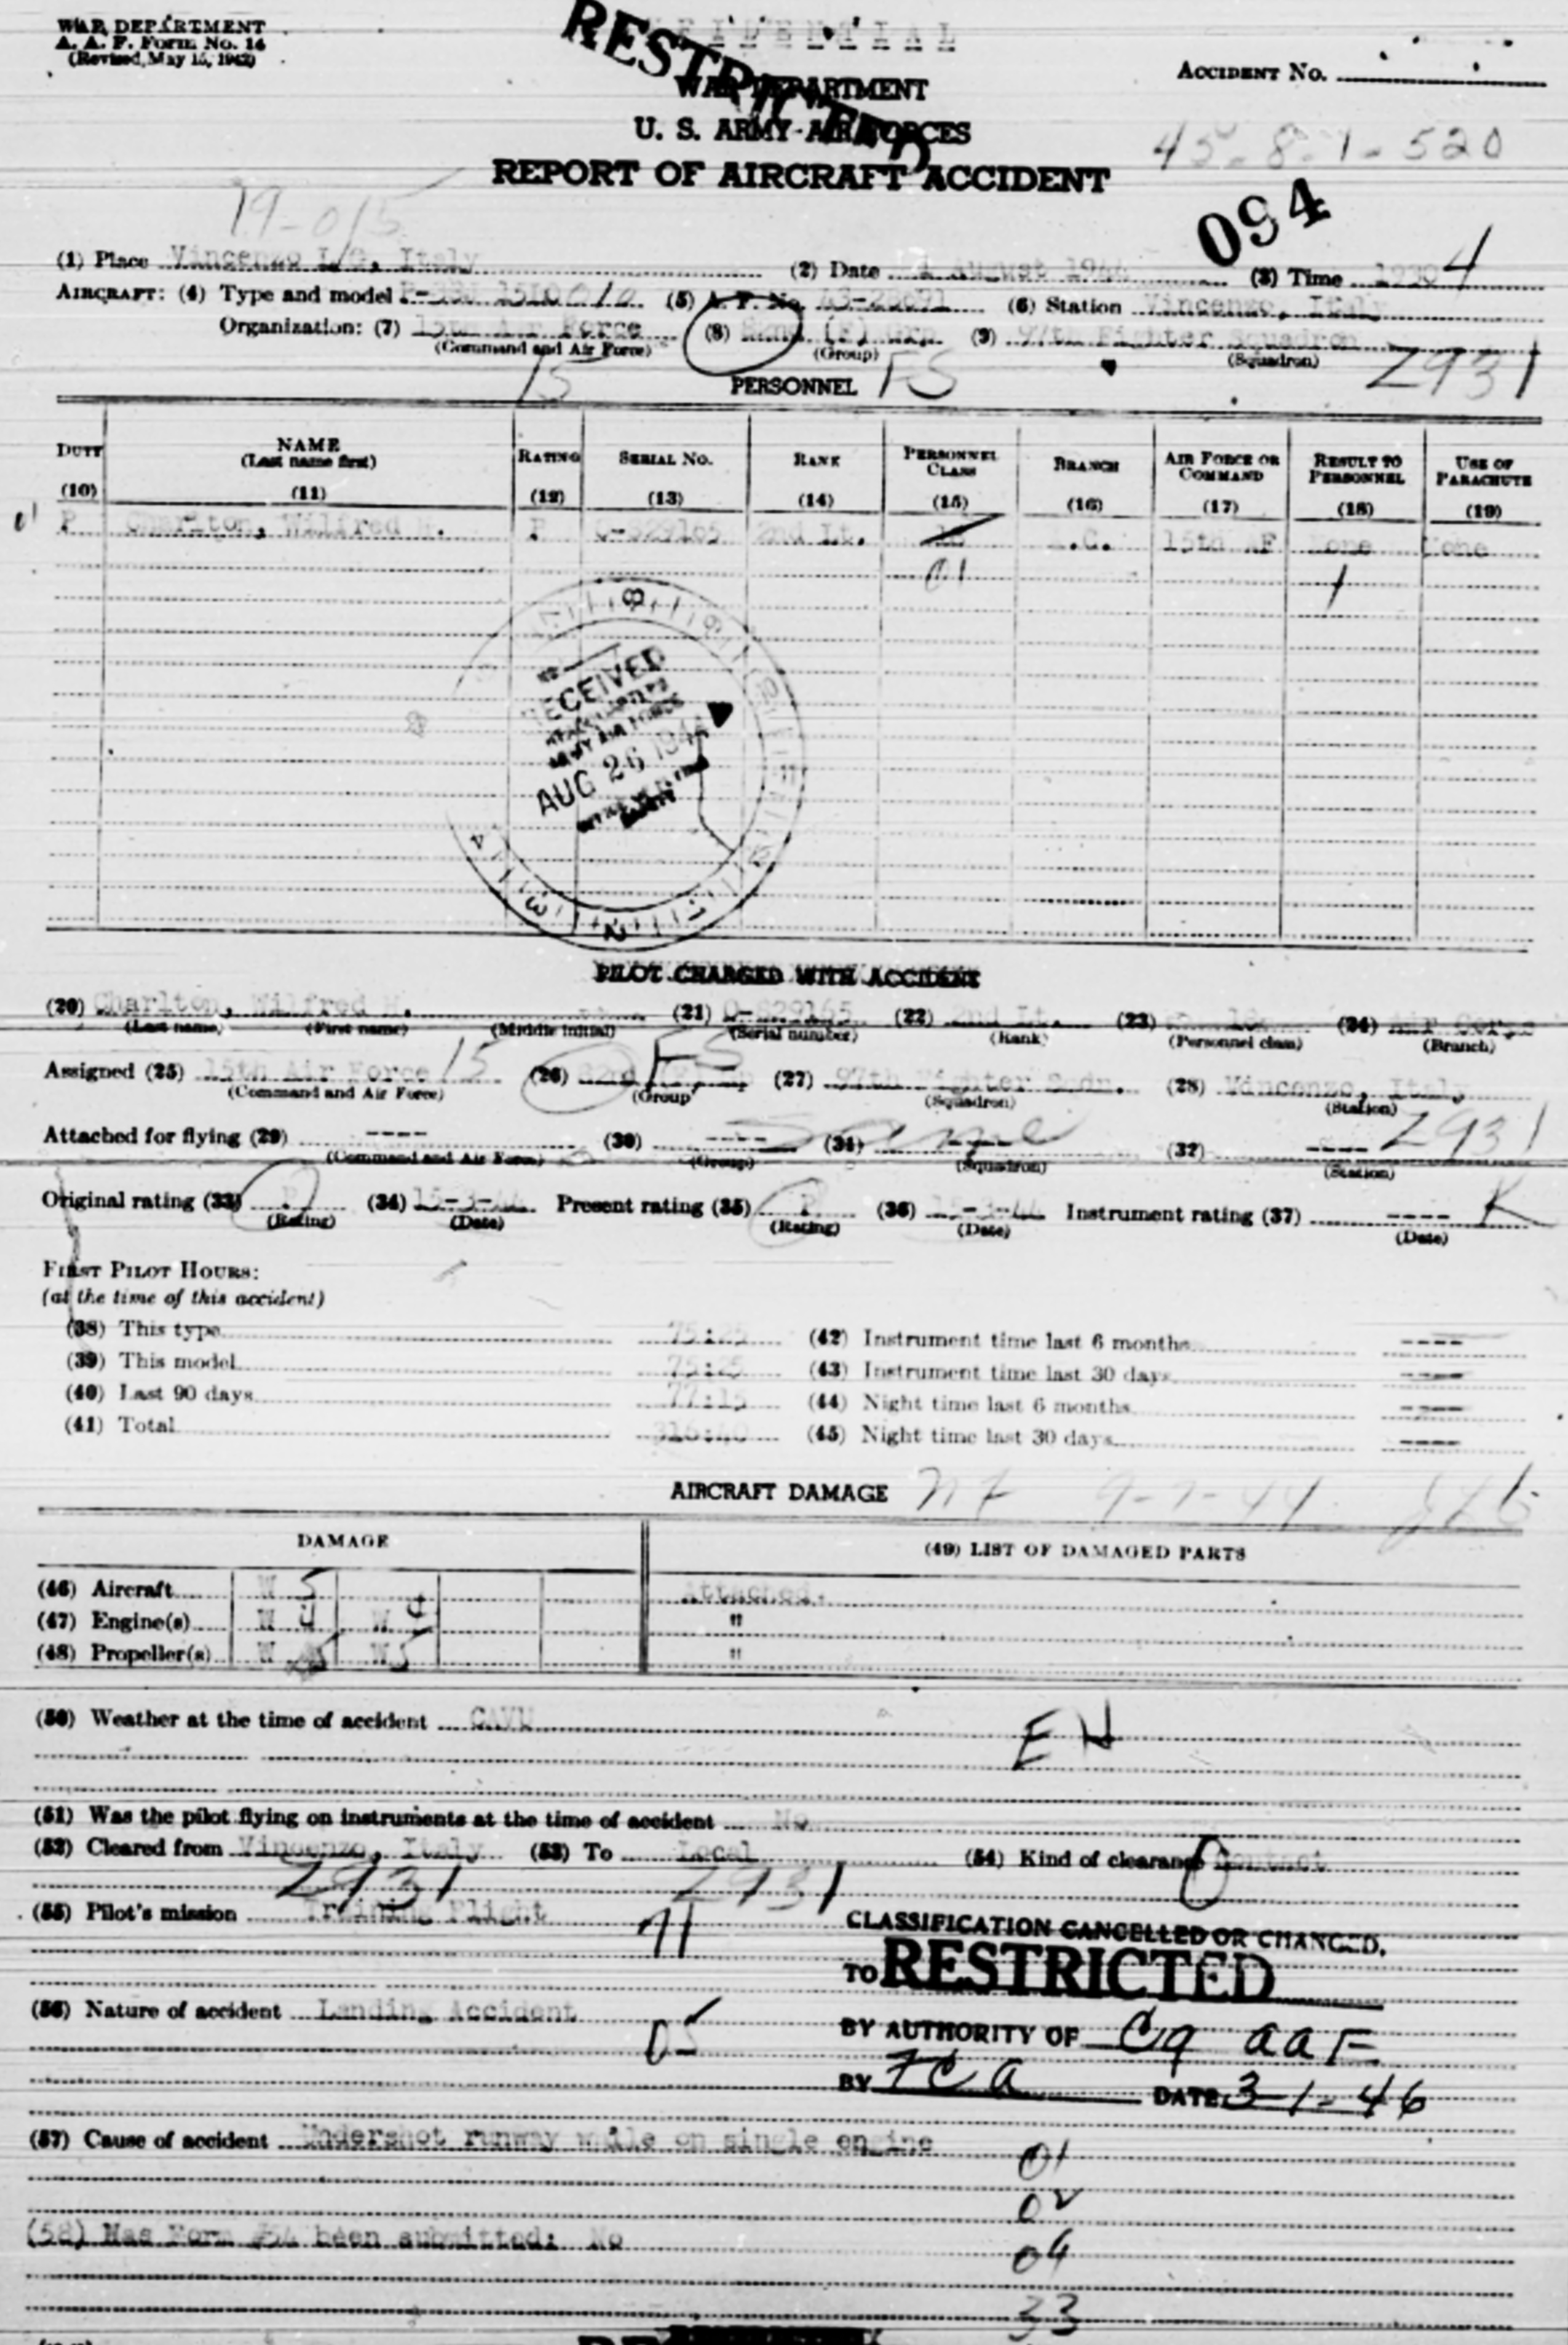 WAR DEPARTMENT
A. A. F. FORM NO. 14
(Revised, May 15, 1942)
RESTRICTED
WAR DEPARTMENT
U. S. ARMY AIR FORCES
REPORT OF AIRCRAFT ACCIDENT
ACCIDENT NO.
45-8-1-520
094
79-015
(1) Place Vincenzo L/G, Italy (2) Date 1 August 1944 (3) Time 4
AIRCRAFT: (4) Type and model (5) A. F. No. (6) Station Vincenzo, Italy
Organization: (7) 15th Air Force (8) 82nd (F) Grp (9) 97th Fighter Squadron
(Command and Air Force) (Group) (Squadron)
15 PERSONNEL FS 2931
DUTY NAME RATING SERIAL NO. RANK PERSONNEL CLASS BRANCH AIR FORCE OR COMMAND RESULT TO PERSONNEL USE OF PARACHUTE
(Last name first)
(10) (11) (12) (13) (14) (15) (16) (17) (18) (19)
P Charlton, Wilfred H. P O-829165 2nd Lt. 18 A.C. 15th AF None None
01 1
RECEIVED
ARMY AIR FORCE
AUG 26 1944
PILOT CHARGED WITH ACCIDENT
(20) Charlton, Wilfred H. (21) O-829165 (22) 2nd Lt. (23) 18 (24) Air Corps
(Last name) (First name) (Middle initial) (Serial number) (Rank) (Personnel class) (Branch)
Assigned (25) 15th Air Force 15 (26) 82nd FS (27) 97th Fighter Sqdn. (28) Vincenzo, Italy
(Command and Air Force) (Group) (Squadron) (Station)
Attached for flying (29) ---- (30) ---- Same (31) ---- (32) ---- 2931
(Command and Air Force) (Group) (Squadron) (Station)
Original rating (33) P (34) Present rating (35) P (36) Instrument rating (37) ---- K
(Rating) (Date) (Rating) (Date) (Date)
FIRST PILOT HOURS:
(at the time of this accident)
(38) This type 75:25 (42) Instrument time last 6 months ----
(39) This model 75:25 (43) Instrument time last 30 days ----
(40) Last 90 days 77:15 (44) Night time last 6 months ----
(41) Total 316:40 (45) Night time last 30 days ----
AIRCRAFT DAMAGE 9-7-44
DAMAGE (49) LIST OF DAMAGED PARTS
(46) Aircraft W 5 Attached.
(47) Engine(s) W 4 W 4 "
(48) Propeller(s) W W 5 "
(50) Weather at the time of accident CAVU
(51) Was the pilot flying on instruments at the time of accident No
(52) Cleared from Vincenzo, Italy (53) To Local (54) Kind of clearance Contact
2931 2931
(55) Pilot's mission Training Flight
CLASSIFICATION CANCELLED OR CHANGED.
TO RESTRICTED
(56) Nature of accident Landing Accident
BY AUTHORITY OF Cg AAF
05
BY TCA DATE 3-1-46
(57) Cause of accident Undershot runway while on single engine
01
02
(58) Has Form #54 been submitted: No
04
33